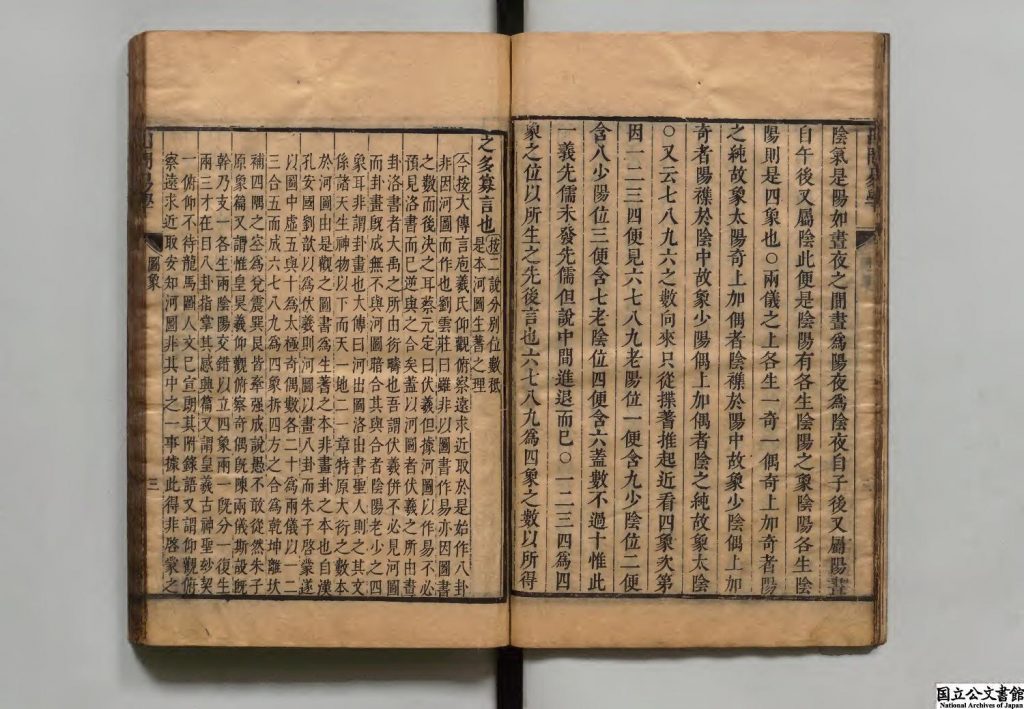 陰氣是陽如晝夜之間晝爲陽夜爲陰夜自子後又屬陽晝
自午後又屬陰此便是陰陽有各生陰陽之象陰陽各生陰
陽則是四象也○兩儀之上各生一奇一偶奇上加奇者陽
之純故象太陽奇上加偶者陰襍於陽中故象少陰偶上加
奇者陽襍於陰中故象少陽偶上加偶者陰之純故象太陰
○又云七八九六之數向來只從揲蓍推起近看四象次第
因一二三四便見六七八九老陽位一便含九少陰位二便
含八少陽位三便含七老陰位四便含六蓋數不過十惟此
一義先儒未發先儒但說中間進退而已○一二三四爲四
象之位以所生之先後言也六七八九爲四象之數以所得
之多寡言也按二說分別位數祇
是本河圖生蓍之理
今按大傳言庖羲氏仰觀俯察遠求近取於是始作八卦
非因河圖而作也劉雲莊曰雖非以圖書作易亦因圖書
之數而後決之耳蔡元定曰伏羲但據河圖以作易不必
預見洛書而已逆與之合矣蓋以河圖者伏羲之所由畫
卦洛書者大禹之所由衍疇也吾謂伏羲倂不必見河圖
而卦畫旣成無不與河圖暗合其與合者陰陽老少之四
象耳非謂卦畫也大傳曰河出圖洛出書聖人則之其文
係諸天生神物以下而天一地二一章特原大衍之數本
於河圖由是觀之圖書爲生蓍之本非畫卦之本也自漢
孔安國劉歆以爲伏羲則河圖以畫八卦而朱子啓蒙遂
以圖中虛五與十爲太極奇偶數各二十爲兩儀以一二
三合五而成六七八九爲四象拆四方之合爲乾坤離坎
補四隅之空爲兌震巽艮皆牽强成說愚不敢從然朱子
原象篇又謂惟皇昊羲仰觀俯察奇偶旣陳兩儀斯設旣
幹乃支一各生兩陰陽交錯以立四象兩一旣分一復生
兩三才在目八卦指掌其感興篇又謂皇羲古神聖妙契
一俯仰不待龍馬圖人文已宣朗其附錄語又謂仰觀俯
察遠求近取安知河圖非其中之一事據此得非啓蒙之
圖象
三
国立公文書館
National Archives of Japan